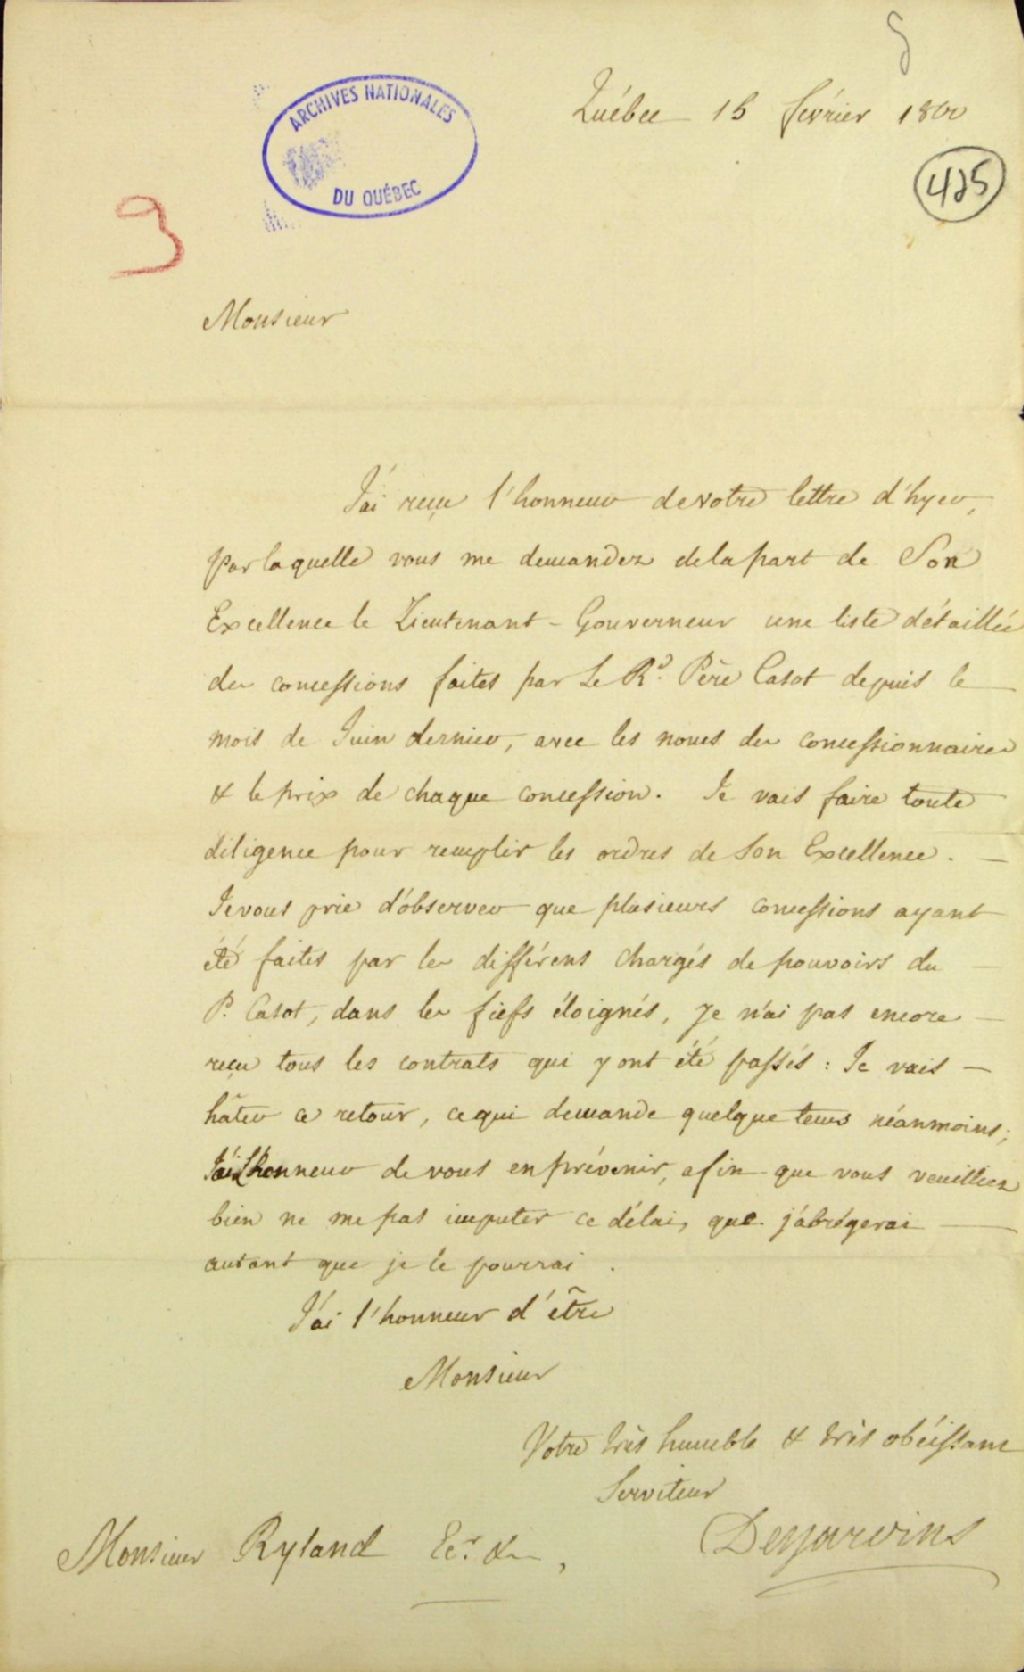 Québec 15 février 1800
ARCHIVES NATIONALES
DU QUÉBEC
425
3
Monsieur
J'ai reçu l'honneur de votre lettre d'hyer,
par laquelle vous me demandez de la part de Son
Excellence le Lieutenant-Gouverneur une liste détaillée
des concessions faites par Le Rd. Père Casot depuis le
mois de Juin dernier, avec les noms des concessionnaires
& le prix de chaque concession. Je vais faire toute
diligence pour remplir les ordres de Son Excellence.
Je vous prie d'observer que plusieurs concessions ayant
été faites par les différens chargés de pouvoirs du
P. Casot, dans les fiefs éloignés, je n'ai pas encore
reçu tous les contrats qui y ont été passés : Je vais
hâter ce retour, ce qui demande quelque tems néanmoins;
J'ai L'honneur de vous en prévenir, afin que vous veuillez
bien ne me pas imputer ce délai, que j'abrégerai
autant que je le pourrai.
J'ai l'honneur d'être
Monsieur
Votre très humble & très obéissant
Serviteur
Desjardins
Monsieur Ryland Ecr. &c